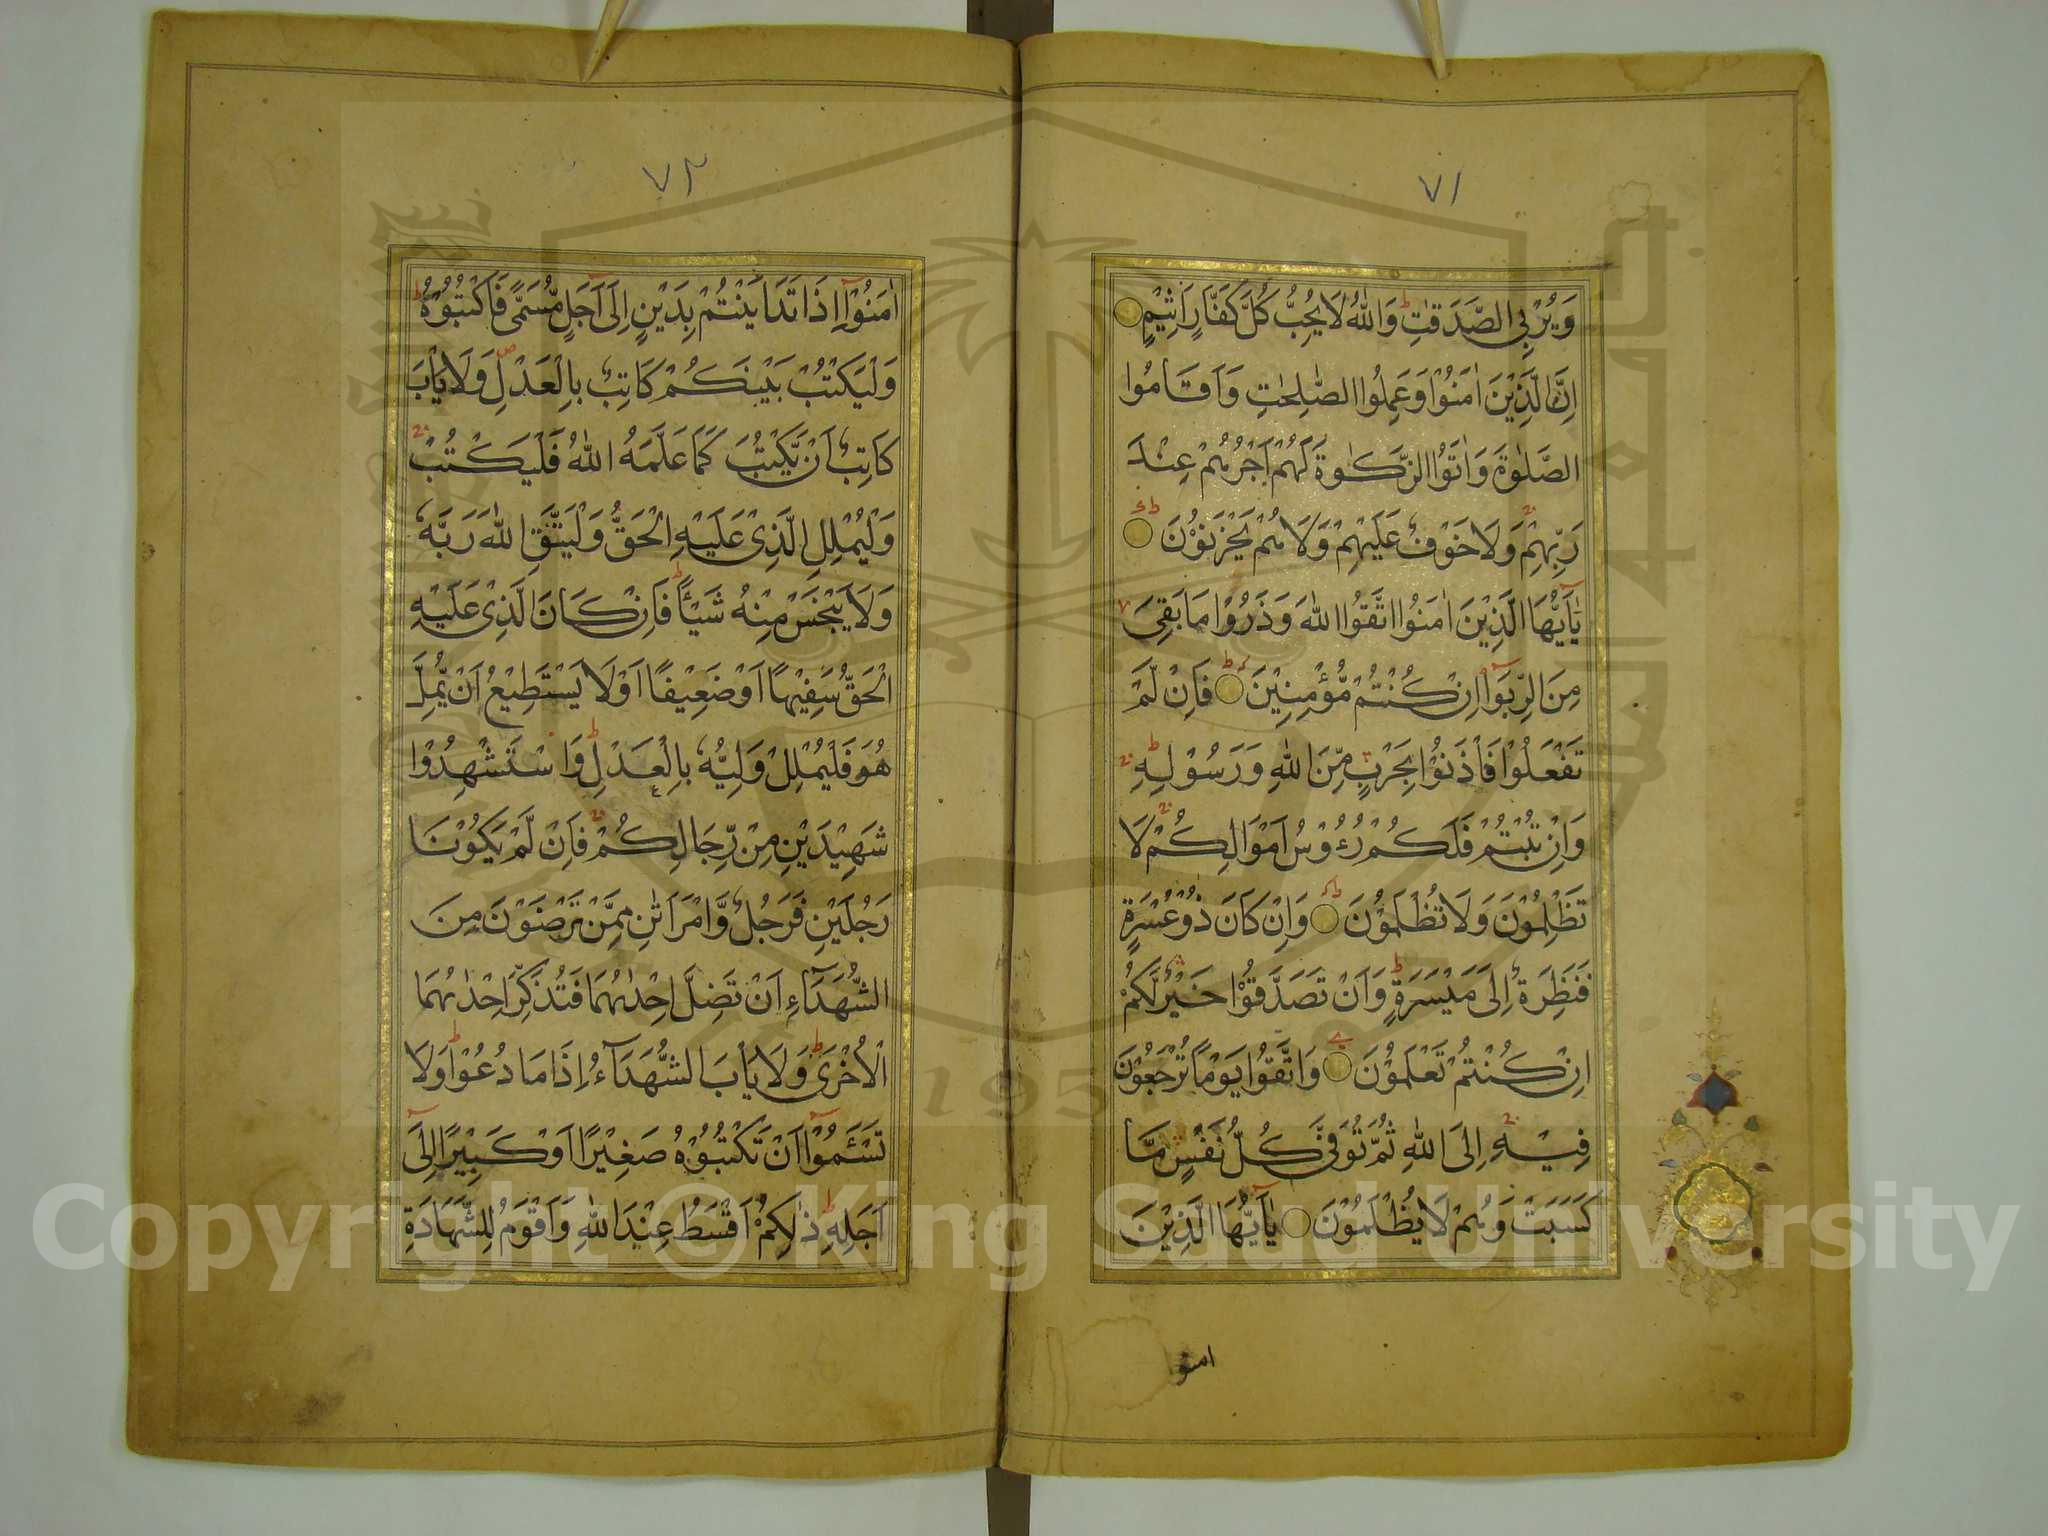 ٧١
وَيُرْبِي الصَّدَقٰتِ وَاللّٰهُ لَا يُحِبُّ كُلَّ كَفَّارٍ اَثِيْمٍ
اِنَّ الَّذِيْنَ اٰمَنُوْا وَعَمِلُوا الصّٰلِحٰتِ وَاَقَامُوا
الصَّلٰوةَ وَاٰتَوُا الزَّكٰوةَ لَهُمْ اَجْرُهُمْ عِنْدَ
رَبِّهِمْ وَلَا خَوْفٌ عَلَيْهِمْ وَلَا هُمْ يَحْزَنُوْنَ
يٰٓاَيُّهَا الَّذِيْنَ اٰمَنُوا اتَّقُوا اللّٰهَ وَذَرُوْا مَا بَقِيَ
مِنَ الرِّبٰوٓا اِنْ كُنْتُمْ مُّؤْمِنِيْنَ فَاِنْ لَّمْ
تَفْعَلُوْا فَاْذَنُوْا بِحَرْبٍ مِّنَ اللّٰهِ وَرَسُوْلِهٖ
وَاِنْ تُبْتُمْ فَلَكُمْ رُءُوْسُ اَمْوَالِكُمْ لَا
تَظْلِمُوْنَ وَلَا تُظْلَمُوْنَ وَاِنْ كَانَ ذُوْ عُسْرَةٍ
فَنَظِرَةٌ اِلٰى مَيْسَرَةٍ وَاَنْ تَصَدَّقُوْا خَيْرٌ لَّكُمْ
اِنْ كُنْتُمْ تَعْلَمُوْنَ وَاتَّقُوْا يَوْمًا تُرْجَعُوْنَ
فِيْهِ اِلَى اللّٰهِ ثُمَّ تُوَفّٰى كُلُّ نَفْسٍ مَّا
كَسَبَتْ وَهُمْ لَا يُظْلَمُوْنَ يٰٓاَيُّهَا الَّذِيْنَ
امنوا
٧٢
اٰمَنُوْٓا اِذَا تَدَايَنْتُمْ بِدَيْنٍ اِلٰٓى اَجَلٍ مُّسَمًّى فَاكْتُبُوْهُ
وَلْيَكْتُبْ بَيْنَكُمْ كَاتِبٌ بِالْعَدْلِ وَلَا يَاْبَ
كَاتِبٌ اَنْ يَّكْتُبَ كَمَا عَلَّمَهُ اللّٰهُ فَلْيَكْتُبْ
وَلْيُمْلِلِ الَّذِيْ عَلَيْهِ الْحَقُّ وَلْيَتَّقِ اللّٰهَ رَبَّهٗ
وَلَا يَبْخَسْ مِنْهُ شَيْئًا فَاِنْ كَانَ الَّذِيْ عَلَيْهِ
الْحَقُّ سَفِيْهًا اَوْ ضَعِيْفًا اَوْ لَا يَسْتَطِيْعُ اَنْ يُّمِلَّ
هُوَ فَلْيُمْلِلْ وَلِيُّهٗ بِالْعَدْلِ وَاسْتَشْهِدُوْا
شَهِيْدَيْنِ مِنْ رِّجَالِكُمْ فَاِنْ لَّمْ يَكُوْنَا
رَجُلَيْنِ فَرَجُلٌ وَّامْرَاَتٰنِ مِمَّنْ تَرْضَوْنَ مِنَ
الشُّهَدَآءِ اَنْ تَضِلَّ اِحْدٰىهُمَا فَتُذَكِّرَ اِحْدٰىهُمَا
الْاُخْرٰى وَلَا يَاْبَ الشُّهَدَآءُ اِذَا مَا دُعُوْا وَلَا
تَسْـَٔمُوْٓا اَنْ تَكْتُبُوْهُ صَغِيْرًا اَوْ كَبِيْرًا اِلٰٓى
اَجَلِهٖ ذٰلِكُمْ اَقْسَطُ عِنْدَ اللّٰهِ وَاَقْوَمُ لِلشَّهَادَةِ
Copyright © King Saud University
195